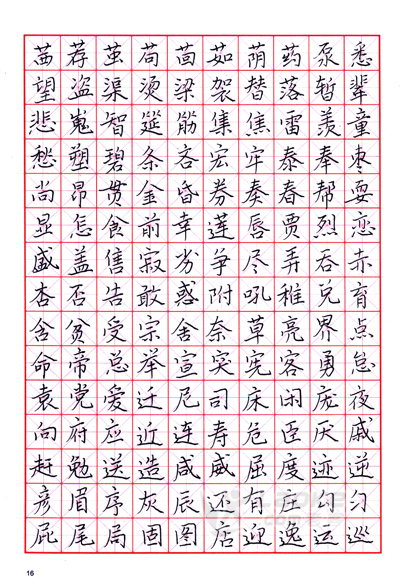 茁荐茧苟茴茹荫药泵悉
望盗渠烫梁袈替落暂辈
悲嵬智筵筋集焦雷羡童
愁塑碧条吝宏牢泰奉枣
尚昂贯金昏券奏春帮耍
显怎食前幸莲唇贾烈恋
盛盖售寂劣争尽弄吞赤
杏否告敢惑附吼稚兑育
含贫受宗舍奈草亮界点
命帝总举宣突宪客勇怠
袁党爱迁尼司床闲庞夜
向府应近连寿危臣厌戚
赶勉送造咸威屈度迹逆
彦眉序灰辰还有庄勾匀
屁尾局固图店迎逸运巡
16